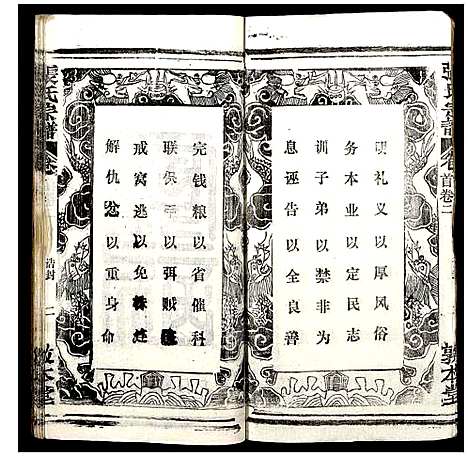 張氏宗譜
卷首卷二
敦本堂
明礼义以厚风俗
务本业以定民志
训子弟以禁非为
息诬告以全良善
完钱粮以省催科
联保甲以弭贼盗
戒窝逃以免株连
解仇忿以重身命
張氏宗譜
卷
誥封
一
敦本堂